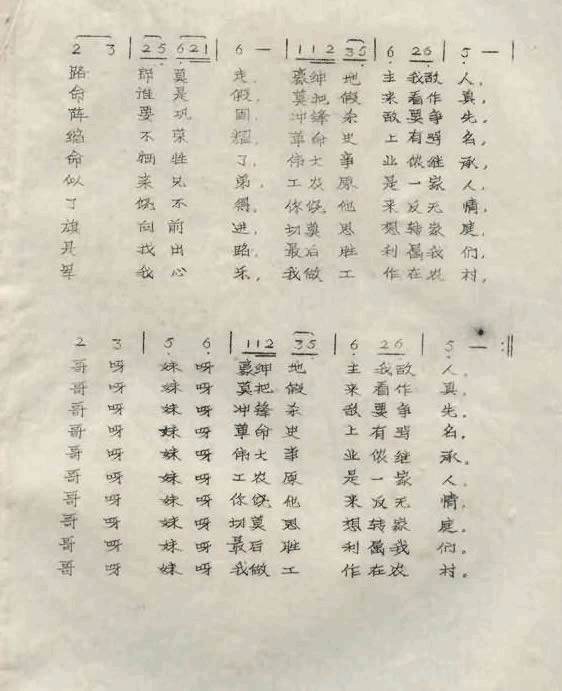 2 3 | 25 621 | 6 — | 112 35 | 6 26 | 5 — |
路 莫 走, 豪绅 地 主 我敌 人,
命 谁 是 假, 莫把 假 来 看作 真,
阵 要 巩 固, 冲锋 杀 敌 要争 先,
不 荣 耀, 革命 史 上 有 名,
命 牺 牲 了, 伟大 事 业 侬继 承,
似 亲 兄 弟, 工农 原 是 一家 人,
了 饶 不 得, 你饶 他 来 反无 情,
旗 向 前 进, 切莫 思 想 转家 庭,
是 找 出 路, 最后 胜 利 属我 们,
毕 我 心 乐, 我做 工 作 在农 村,
2 3 | 5 6 | 112 35 | 6 26 | 5 — :||
哥 呀 妹 呀 豪绅 地 主 我敌 人。
哥 呀 妹 呀 莫把 假 来 看作 真。
哥 呀 妹 呀 冲锋 杀 敌 要争 先。
哥 呀 妹 呀 革命 史 上 有 名。
哥 呀 妹 呀 伟大 事 业 侬继 承。
哥 呀 妹 呀 工农 原 是 一家 人。
哥 呀 妹 呀 你饶 他 来 反无 情。
哥 呀 妹 呀 切莫 思 想 转家 庭。
哥 呀 妹 呀 最后 胜 利 属我 们。
哥 呀 妹 呀 我做 工 作 在农 村。